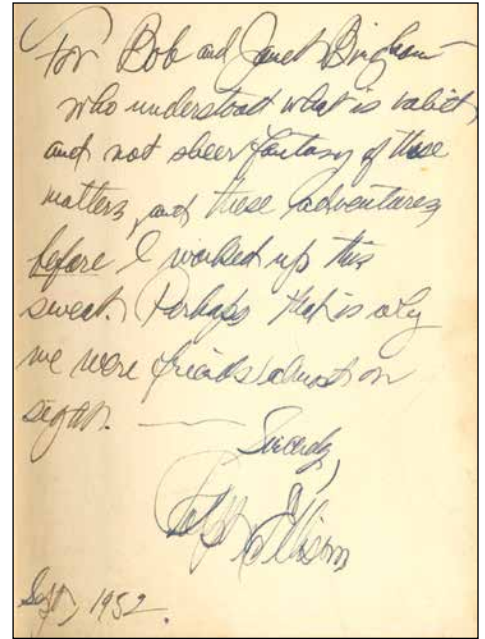 For Bob and Janet Bingham—
who understood what is valid
and not sheer fantasy of these
matters, and these adventures,
before I worked up this
sweat. Perhaps that is why
we were friends almost on
sight. —— Sincerely,
Ralph Ellison
Sept, 1952.